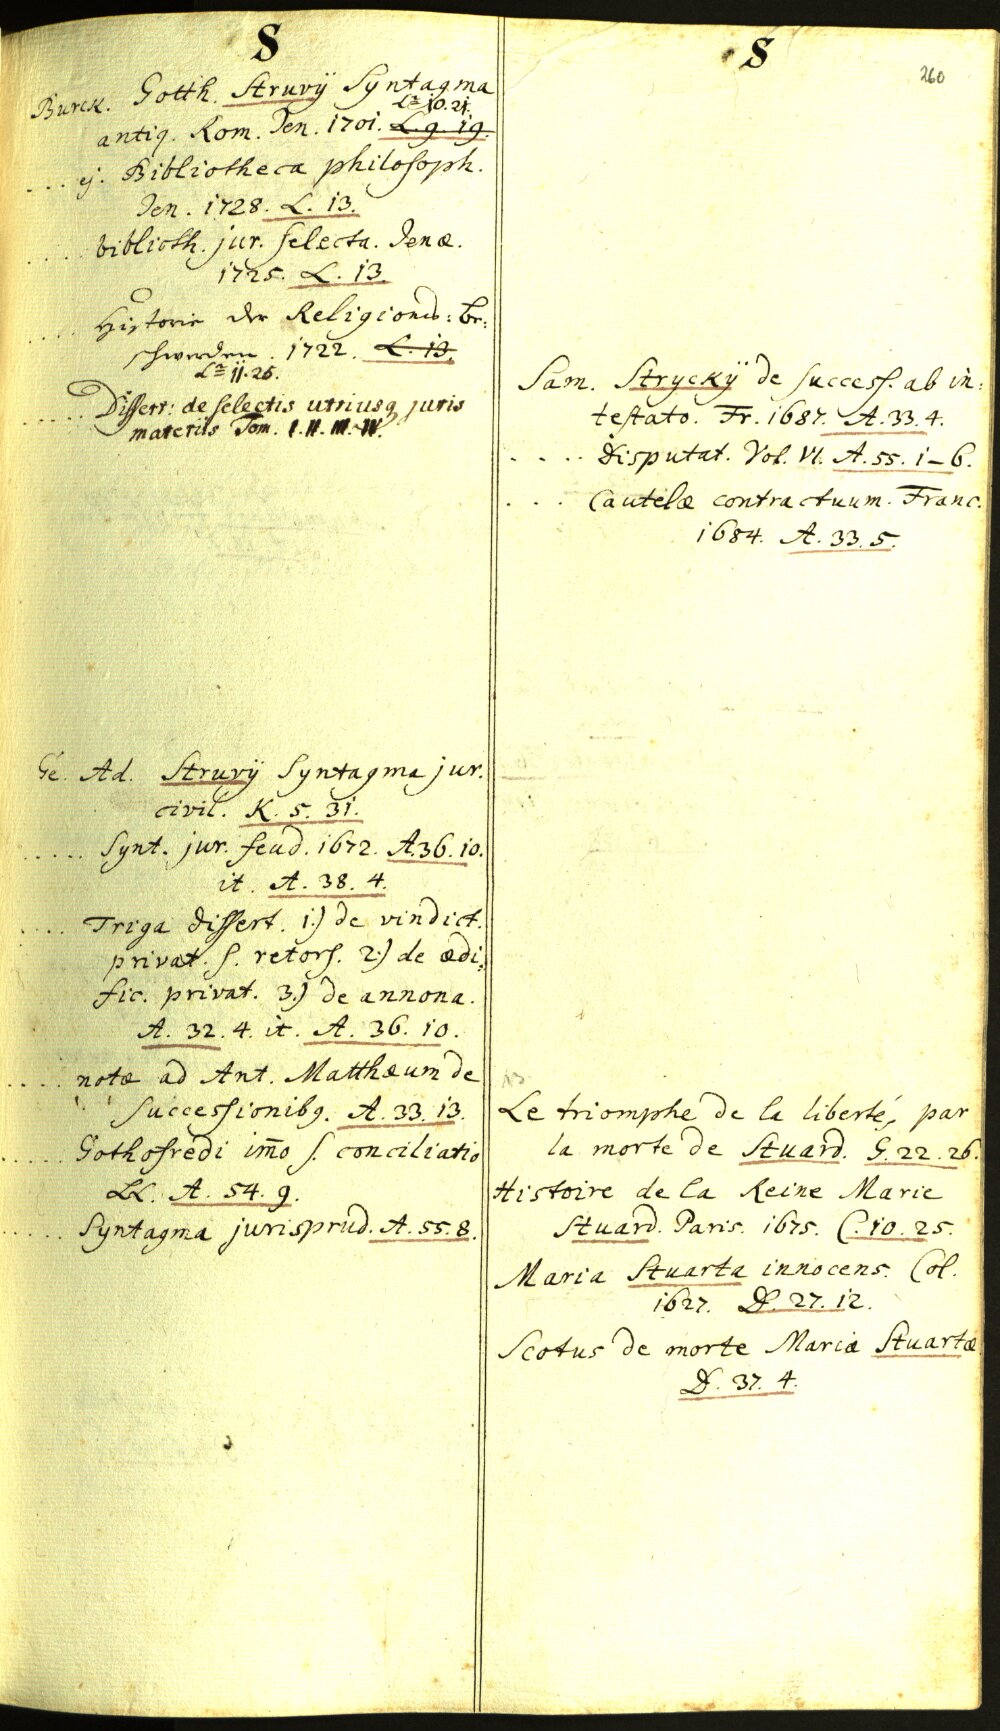 S
Burck. Gotth. Struvÿ Syntagma
La 10. 21.
antiq. Rom. Jen. 1701. L. 9. 19.
... ej. Bibliotheca philosoph.
Jen. 1728. L. 13.
.... biblioth. jur. selecta. Jenæ.
1725. L. 13.
.... Historie der Religions-be-
schwerden. 1722. L. 13.
La 11. 26.
.... Dissert: de selectis utriusq juris
materiis Tom. I. II. III. IV.
Ge. Ad. Struvÿ Syntagma jur.
civil. K. 5. 31.
..... Synt. jur. feud. 1672. A. 36. 10.
it. A. 38. 4.
.... Triga dissert. 1.) de vindict.
privat. s. retors. 2.) de ædi-
fic. privat. 3.) de annona.
A. 32. 4. it. A. 36. 10.
.... notæ ad Ant. Matthæum de
successionibq. A. 33. 13.
..... Gothofredi im̄o s. conciliatio
LL. A. 54. 9.
..... Syntagma jurisprud. A. 55. 8.
S
260
Sam. Stryckÿ de success. ab in-
testato. Fr. 1687. A. 33. 4.
.... Disputat. Vol. VI. A. 55. 1-6.
... Cautelæ contractuum. Franc.
1684. A. 33. 5.
Le triomphe de la liberté, par
la morte de Stuard. G. 22. 26.
Histoire de la Reine Marie
Stuard. Paris. 1675. C. 10. 25.
Maria Stuarta innocens. Col.
1627. D. 27. 12.
Scotus de morte Mariæ Stuartæ
D. 37. 4.